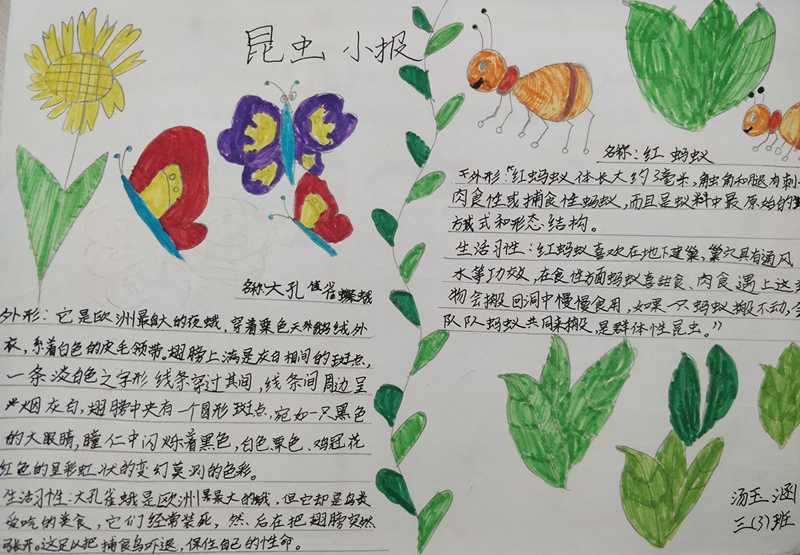 昆虫小报
名称:大孔雀蝶蛾
外形:它是欧洲最大的夜蛾,穿着栗色天鹅绒外
衣,系着白色的皮毛领带。翅膀上满是灰白相间的斑点,
一条淡白色之字形线条穿过其间,线条间周边呈
烟灰白,翅膀中央有一个圆形斑点,宛如一只黑色
的大眼睛,瞳仁中闪烁着黑色,白色栗色、鸡冠花
红色的呈彩虹状的变幻莫测的色彩。
生活习性:大孔雀蛾是欧洲最大的蛾,但它却是鸟最
爱吃的美食,它们经常装死,然后在把翅膀突然
张开。这足以把捕食鸟吓退,保住自己的性命。
名称:红蚂蚁
外形:“红蚂蚁体长大约3毫米,触角和腿有刺
肉食性或捕食性蚂蚁,而且是蚁料中最原始的
方式和形态结构。
生活习性:红蚂蚁喜欢在地下建巢,巢穴具有通风
水等功效,在食性方面蚂蚁喜甜食、肉食遇上这
物会搬回洞中慢慢食用,如果一只蚂蚁搬不动,会
队队蚂蚁共同来搬,是群体性昆虫。”
汤玉涵
三(3)班